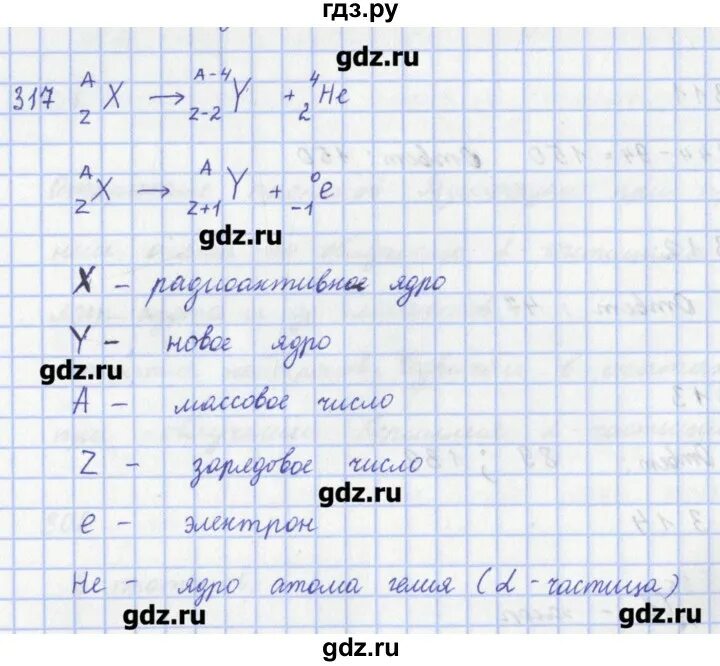 гдз.ру
gdz.ru
317 ᴬ_Z X → ᴬ⁻⁴_Z-2 Y + ⁴_2 He
ᴬ_Z X → ᴬ_Z+1 Y + ⁰_-1 e
gdz.ru
X – радиоактивное ядро
Y – новое ядро
gdz.ru
A – массовое число
Z – зарядовое число
gdz.ru
e – электрон
He – ядро атома гелия (α-частица)
gdz.ru
gdz.ru
gdz.ru